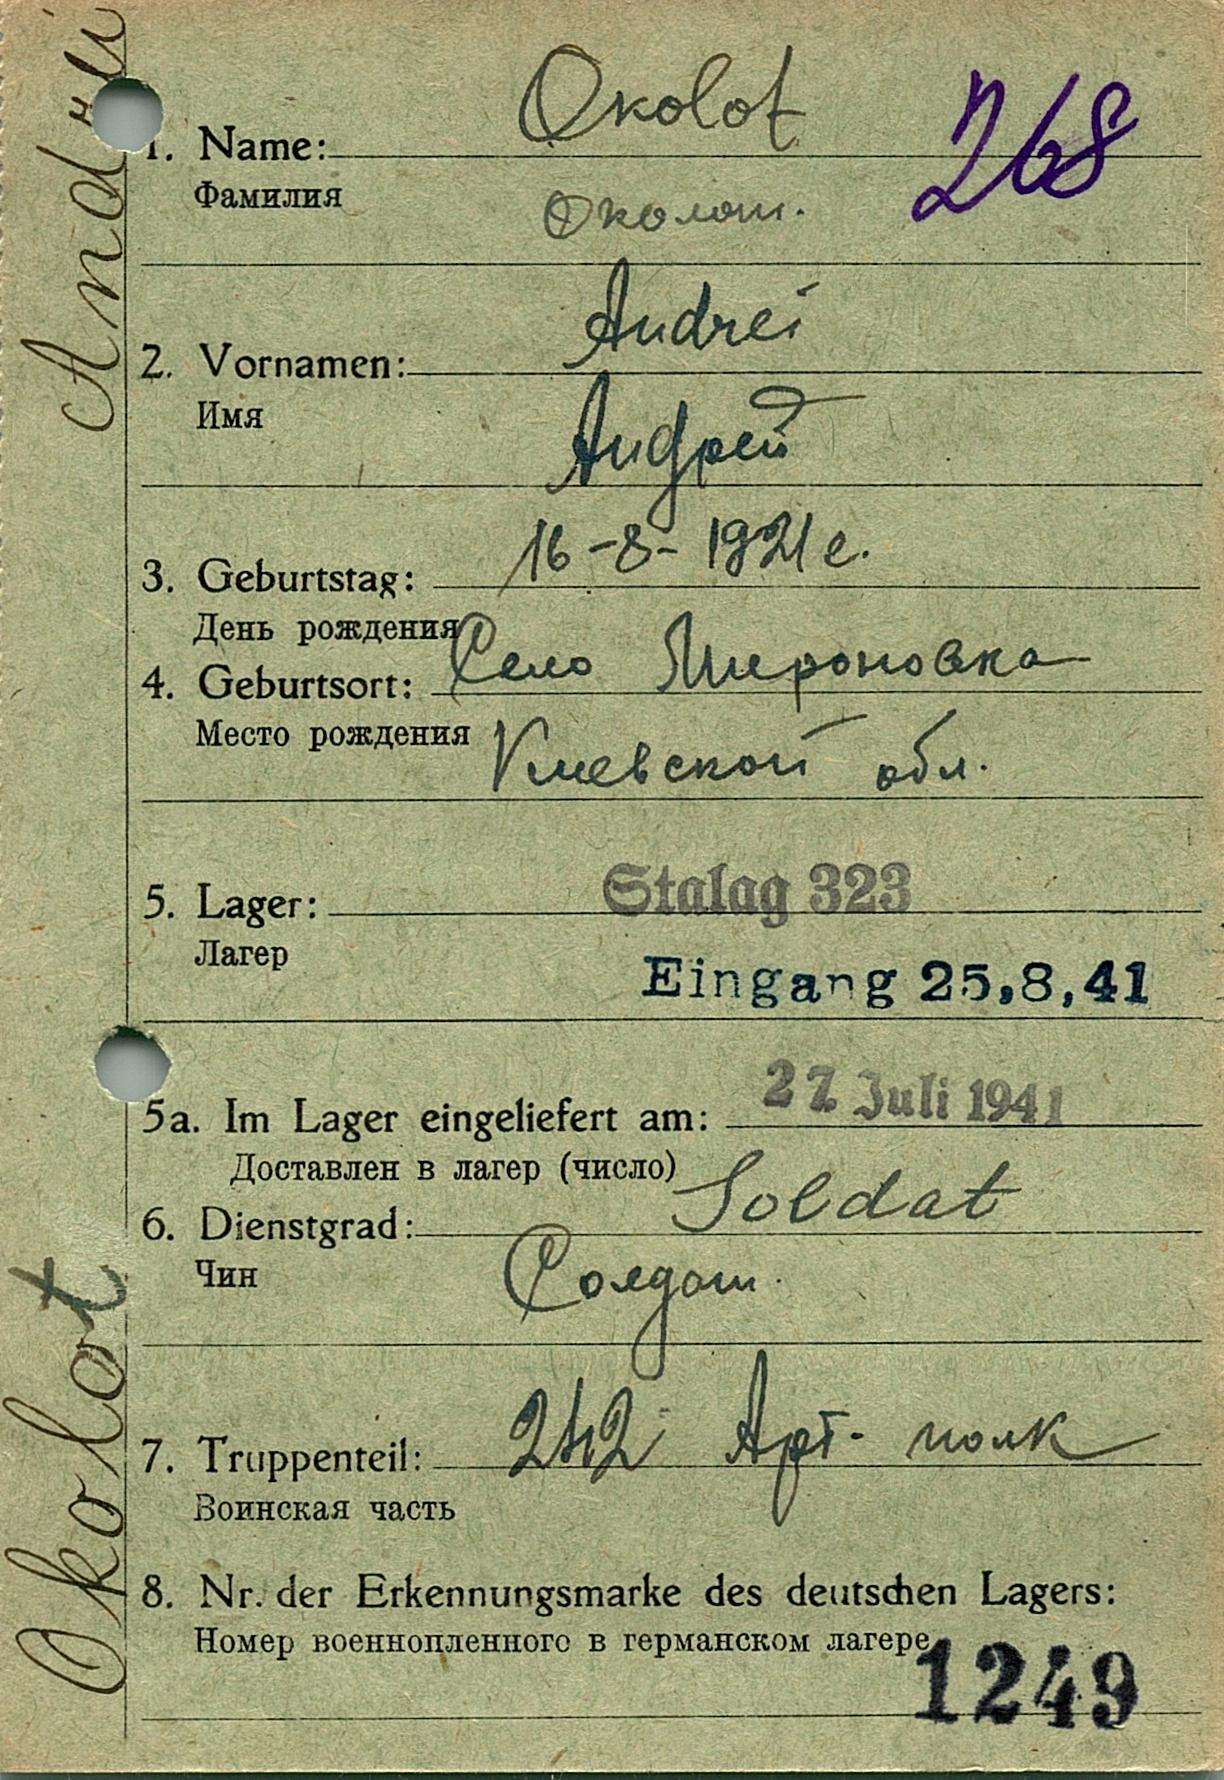 Okolot Andrei
Okolot
268
1. Name:
Фамилия
Околот.
Andrei
2. Vornamen:
Имя
Андрей
16-8-1921 г.
3. Geburtstag:
День рождения
Село Мироновка
4. Geburtsort:
Место рождения
Киевской обл.
Stalag 323
5. Lager:
Лагер
Eingang 25,8,41
27. Juli 1941
5a. Im Lager eingeliefert am:
Доставлен в лагер (число)
Soldat
6. Dienstgrad:
Чин
Солдат.
242 Арт. полк
7. Truppenteil:
Воинская часть
8. Nr. der Erkennungsmarke des deutschen Lagers:
Номер военнопленного в германском лагере
1249